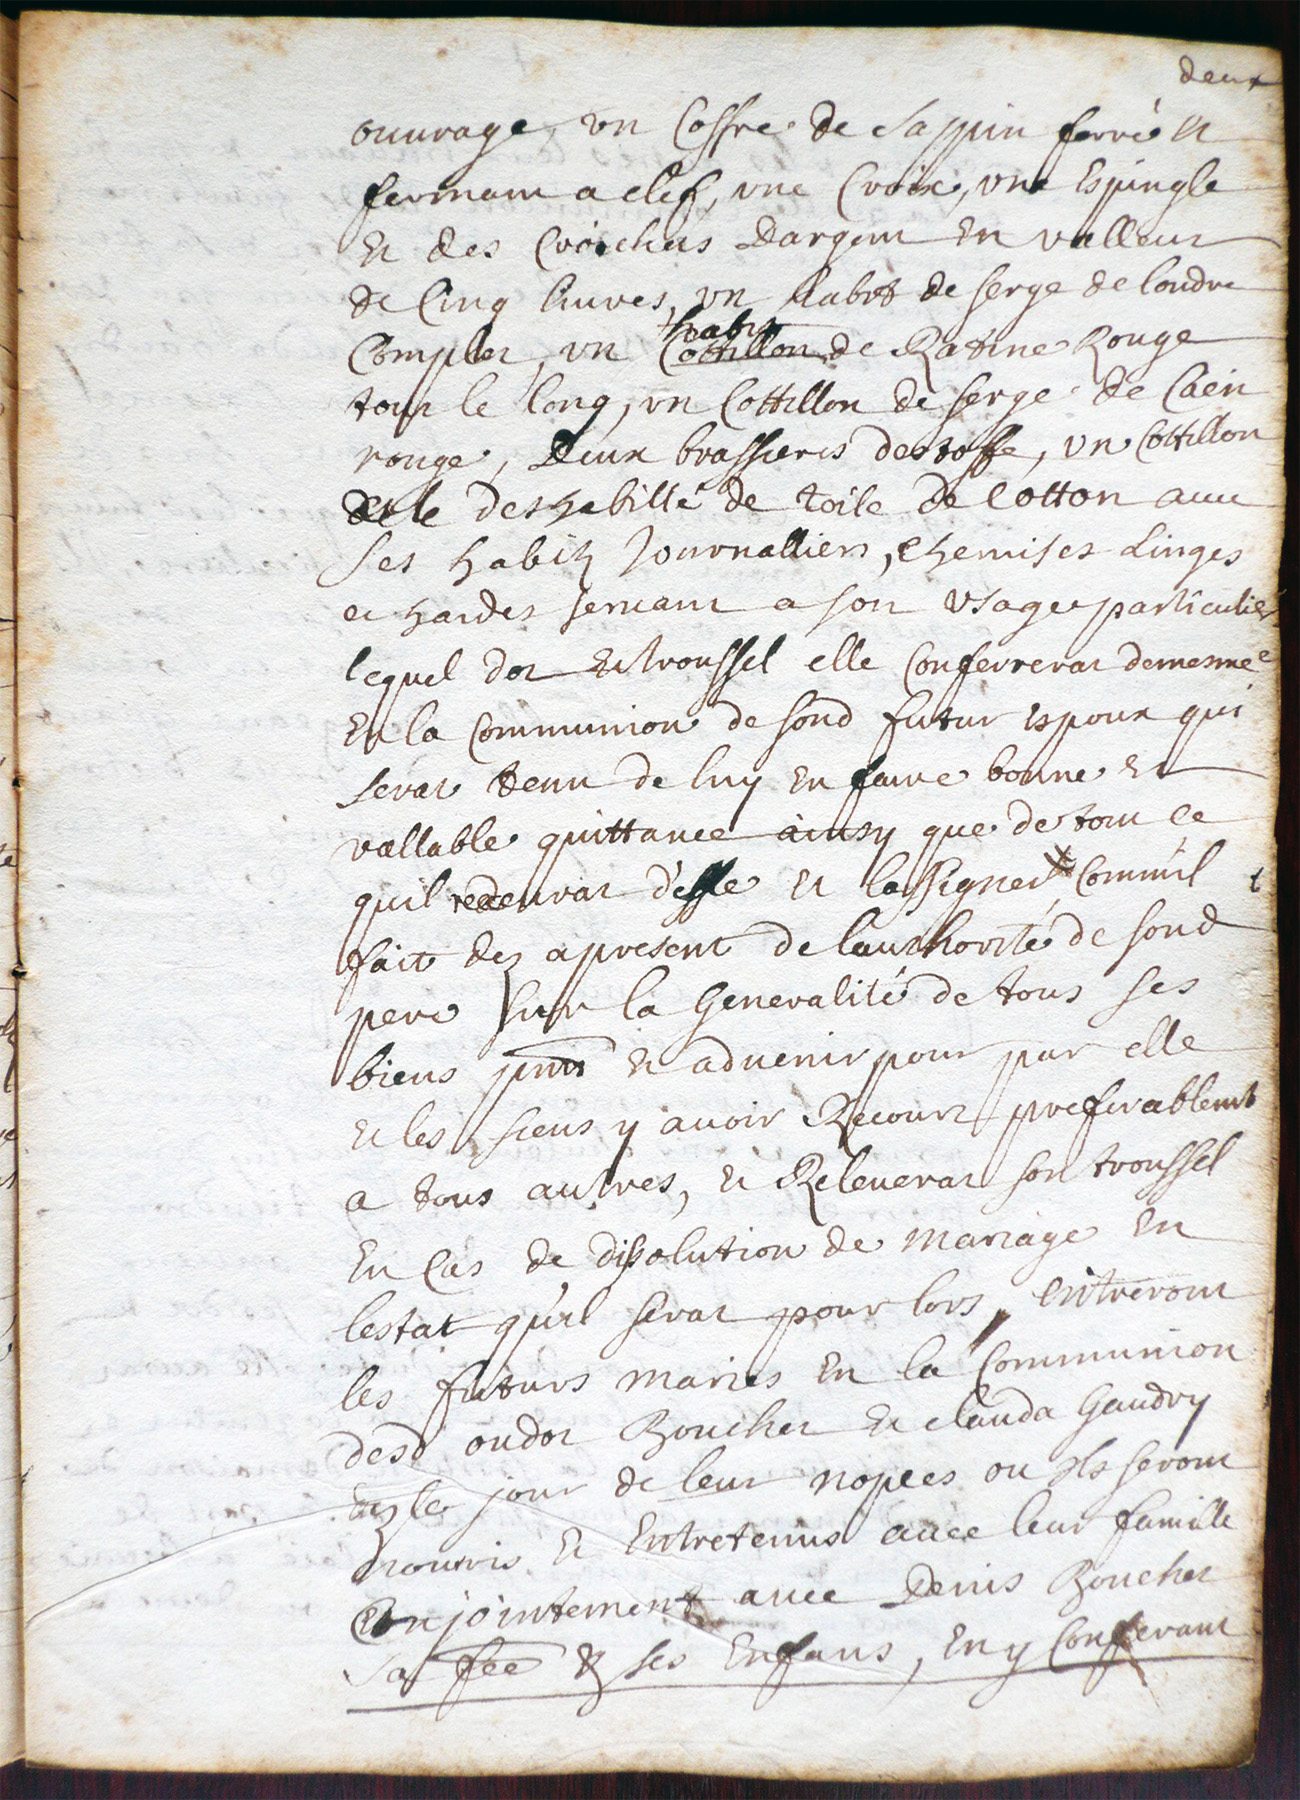 deux
ouvrage, un Coffre de Sappin ferré et
fermant a clef, une Croix, une Espingle
et des Crochets dargent en valleur
de Cinq livres, un habit de serge de londre
Complet, un habit Cottillon de Ratine Rouge
tout le long, un Cottillon de serge de Caen
rouge, Deux brassieres destoffe, un Cottillon
et le deshabillé de toile de Cotton avec
ses habitz Journalliers, Chemises Linges
et hardes servant a son Usage particulier
lequel dot et troussel elle Conferrerat demesme
En la Communion de sond futur Espoux qui
serat tenu de luy En faire bonne et
vallable quittance ainsy que de tout ce
quil recevrat d'elle et lassigner Comm'il
fait dez apresent de lauthorité de sond
pere sur la Generalité de tous ses
biens pnts et advenir pour par elle
et les siens y avoir Recours preferablemt
a tous autres, et Relèverat son troussel
En Cas de dissolution de mariage En
lestat qu'il serat pour lors, entreront
les futurs mariés En la Communion
desd oudot Boucher et Clauda Gaudry
dez le jour de leur nopces ou ils seront
nourris et Entretenus avec leur famille
Conjointement avec Denis Boucher
Sa fee & ses Enfans, En y Conferant